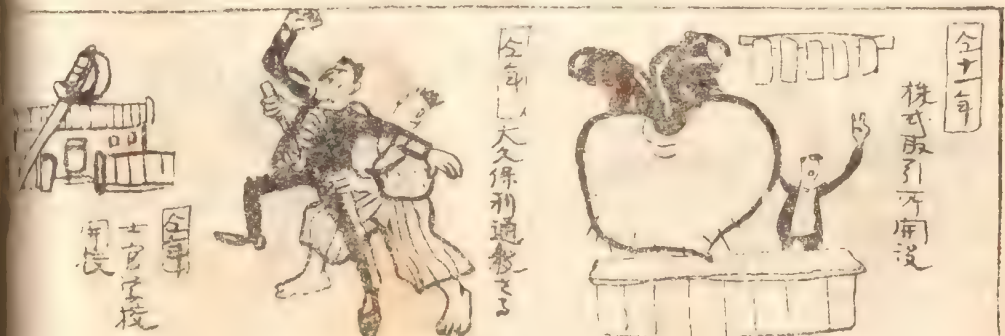 仝十一年
株式取引所開設
仝年 大久保利通殺さる
仝年
士官学校
開校